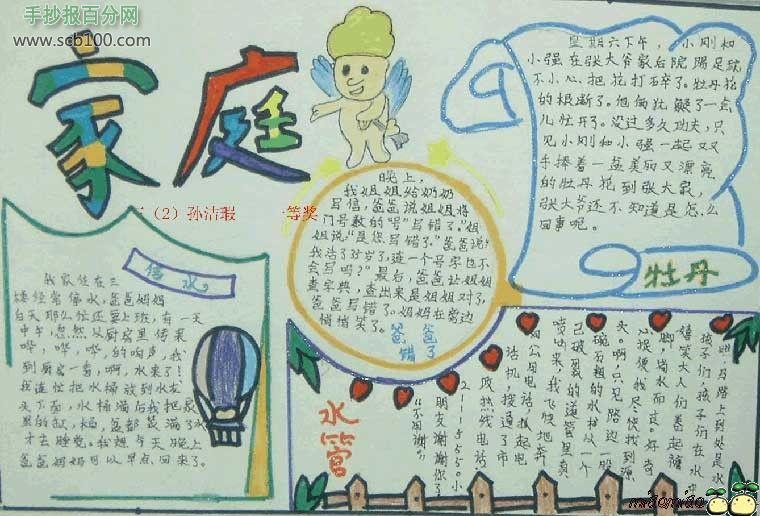 手抄报百分网
www.scb100.com
家庭
（2）孙洁瑕 一等奖
星期六下午，小刚和
小强在张大爷家后院踢足球
不小心把花打碎了。牡丹花
的根断了。他俩
儿忙开了。没过多久功夫，只
见小刚和小强一起双
手捧着一盆美丽又漂亮
的牡丹花到张大爷家，
张大爷还不知道是怎么
回事呢。
牡丹
晚上，
我姐姐给奶奶
写信，爸爸说姐姐将
门号数的“号”写错了。姐
姐说“是您写错了。”爸爸说“
我活了35岁了，连一个号字也不
会写吗？”最后，爸爸让姐姐
查字典，查出来是姐姐对了，
爸爸写错了。妈妈在旁边
悄悄笑了。
爸爸
错了
停水
我家住在三
楼经常停水，爸爸妈妈
白天那么忙还要上班，有一天
中午，忽然从厨房里传来
哗，哗，哗的响声，我
到厨房一看，啊，水来了！
我连忙把水桶放到水龙
头下面，水桶满后我把家
里的缸，锅，盆都装满了水
才去睡觉。我想今天晚上
爸爸妈妈可以早点回来了。
水管
马路上到处是水
孩子们，孩子们在水中
嬉笑大人们卷起裤
脚，淌水而过。好奇
心促使我尽快找到源
头。啊，只见路边一股
碗石粗的水柱从一个
已破裂的道管里直
喷出来，我飞快地奔
向公用电话，拨起电
话机接通了市
政热线电话。
2115550“小
朋友谢谢你了
“不用谢”